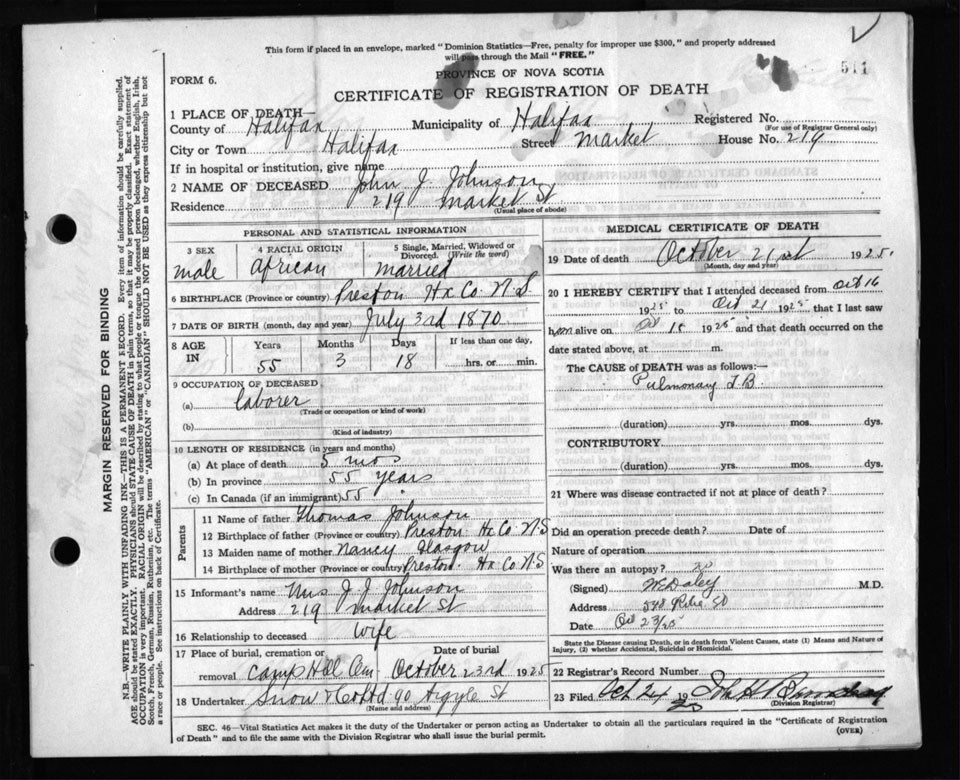 This form if placed in an envelope, marked "Dominion Statistics—Free, penalty for improper use $300," and properly addressed
will pass through the Mail "FREE."
511
FORM 6.
PROVINCE OF NOVA SCOTIA
CERTIFICATE OF REGISTRATION OF DEATH
1 PLACE OF DEATH—
County of Halifax Municipality of Halifax Registered No.
(For use of Registrar General only)
City or Town Halifax Street Market House No. 219
If in hospital or institution, give name
2 NAME OF DECEASED John J. Johnson
Residence 219 Market St
(Usual place of abode)
PERSONAL AND STATISTICAL INFORMATION
3 SEX 4 RACIAL ORIGIN 5 Single, Married, Widowed or Divorced. (Write the word)
male African married
6 BIRTHPLACE (Province or country) Preston Hx Co. N.S
7 DATE OF BIRTH (month, day and year) July 3rd 1870
8 AGE IN Years Months Days If less than one day,
55 3 18 hrs. or min.
9 OCCUPATION OF DECEASED
(a) Laborer
(Trade or occupation or kind of work)
(b)
(Kind of industry)
10 LENGTH OF RESIDENCE (in years and months)
(a) At place of death 5 mos
(b) In province 55 years
(c) In Canada (if an immigrant) 55
Parents
11 Name of father Thomas Johnson
12 Birthplace of father (Province or country) Preston Hx Co N.S
13 Maiden name of mother Nancy Glasgow
14 Birthplace of mother (Province or country) Preston Hx Co N.S
15 Informant's name Mrs J. J. Johnson
Address 219 Market St
16 Relationship to deceased Wife
17 Place of burial, cremation or removal Date of burial
Camp Hill Cem October 23rd 1925
18 Undertaker Snow & Co Ltd 90 Argyle St
(Name and address)
MEDICAL CERTIFICATE OF DEATH
19 Date of death October 21st 1925.
(Month, day and year)
20 I HEREBY CERTIFY that I attended deceased from Oct 16
1925 to Oct 21 1925 that I last saw
him alive on Oct 18 1925 and that death occurred on the
date stated above, at m.
The CAUSE of DEATH was as follows:—
Pulmonary T.B.
(duration) yrs. mos. dys.
CONTRIBUTORY
(duration) yrs. mos. dys.
21 Where was disease contracted if not at place of death?
Did an operation precede death? Date of
Nature of operation
Was there an autopsy? no
(Signed) Daley M.D.
Address
Date Oct 23/25
State the Disease causing Death, or in death from Violent Causes, state (1) Means and Nature of
Injury, (2) whether Accidental, Suicidal or Homicidal.
22 Registrar's Record Number
23 Filed Oct 24 1925
(Division Registrar)
SEC. 46—Vital Statistics Act makes it the duty of the Undertaker or person acting as Undertaker to obtain all the particulars required in the "Certificate of Registration
of Death" and to file the same with the Division Registrar who shall issue the burial permit.
(OVER)
MARGIN RESERVED FOR BINDING
N.B.—WRITE PLAINLY WITH UNFADING INK—THIS IS A PERMANENT RECORD. Every item of information should be carefully supplied.
AGE should be stated EXACTLY. PHYSICIANS should STATE CAUSE OF DEATH in plain terms, so that it may be properly classified. Exact statement of
OCCUPATION is very important. RACIAL ORIGIN will be described by stating to what people or tongue the deceased person belonged, whether English, Irish,
Scotch, French, German, Russian, Ruthenian, etc. The terms "AMERICAN" or "CANADIAN" SHOULD NOT BE USED as they express citizenship but not
a race or people. See instructions on back of Certificate.